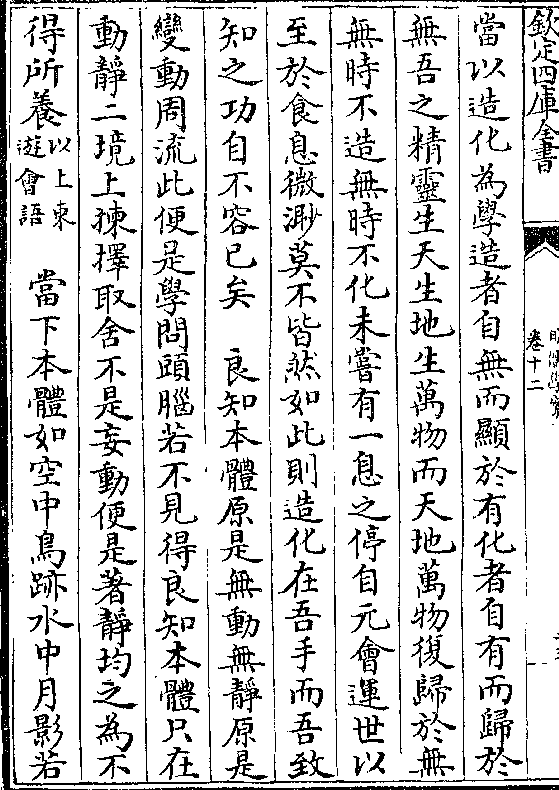 欽定四庫全書
卷十二
當以造化為學造者自無而顯於有化者自有而歸於
無吾之精靈生天生地生萬物而天地萬物復歸於無
無時不造無時不化未嘗有一息之停自元會運世以
至於食息微渺莫不皆然如此則造化在吾手而吾致
知之功自不容已矣　良知本體原是無動無靜原是
變動周流此便是學問頭腦若不見得良知本體只在
動靜二境上揀擇取舍不是妄動便是著靜均之為不
得所養以上東遊會語　當下本體如空中鳥跡水中月影若